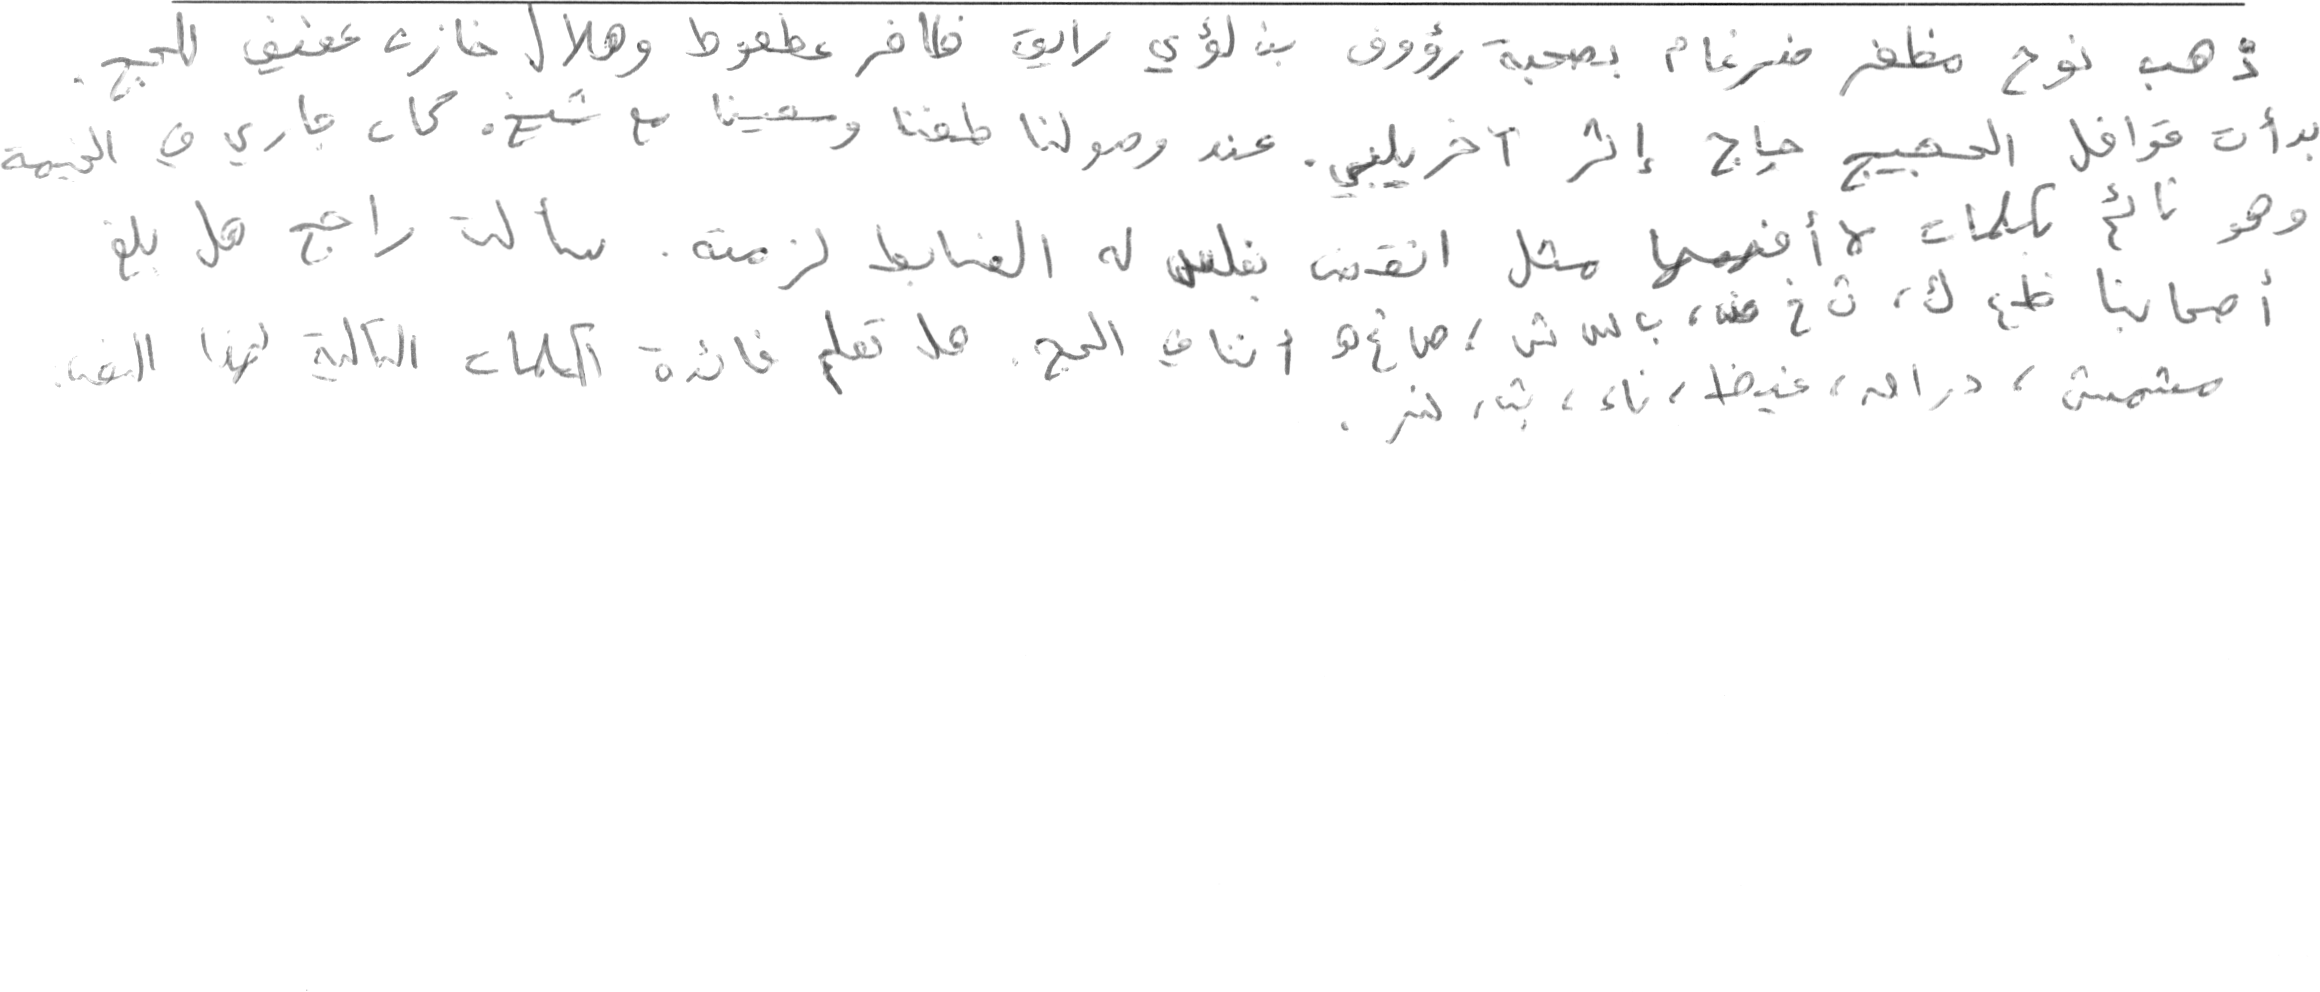 ذهب نوح مظفر ضرغام بصحبة رؤوف بن لؤي رايق ظافر عطعوط وهلال خازن عفيف للحج.
بدأت قوافل الحجيج حاج إثر آخر يلبي. عند وصولنا طفنا وسعينا مع شيخ. كان جاري في الخيمة
وهو نائم بكلمات لا أفهمها مثل انقض بفلس له الضابط لزمته. سألت راجح هل بلغ
أصحابنا ظ ع ك، ث خ ض، ب س ش، ص غ هـ أننا في الحج. هل تعلم فائدة الكلمات التالية لهذا النص:
مشمش، دراهم، غيظ، ناء، بث، لنر.